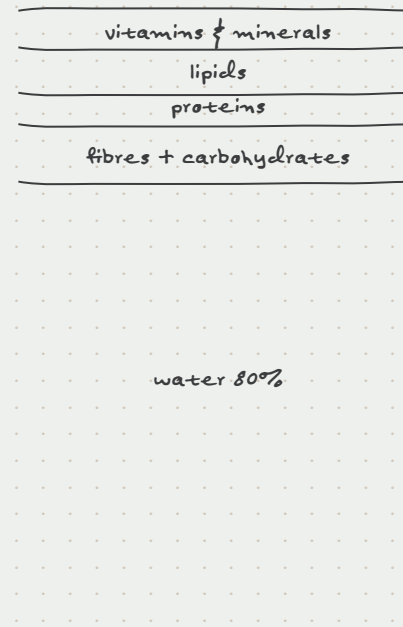 vitamins & minerals
lipids
proteins
fibres + carbohydrates
water 80%